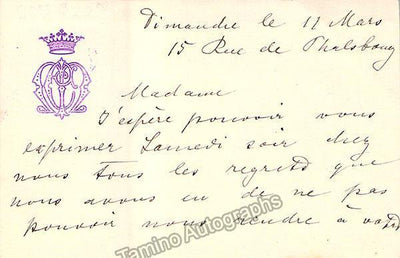 Dimanche le 11 Mars
15 Rue de Phalsbourg
Madame
J'espère pouvoir vous
exprimer Samedi soir chez
nous tous les regrets que
nous avons eu de ne pas
pouvoir nous rendre à votre
Tamino Autographs